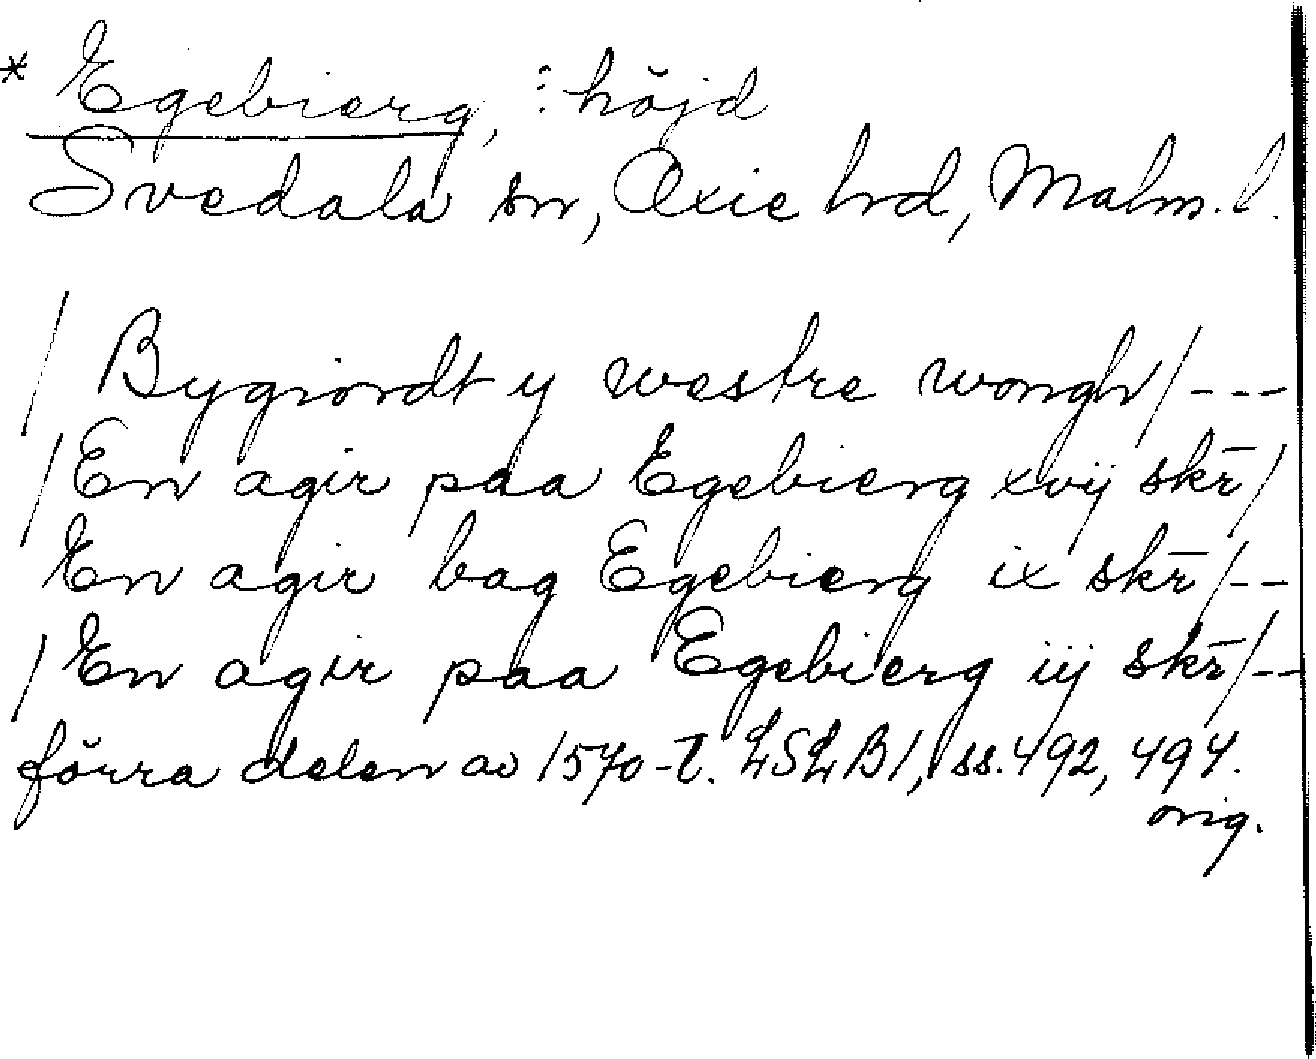 * Egebierg, : höjd
Svedala sn, Oxie hrd, Malm. l.
/ Bygiordt y westre wongh / ---
/ En agir paa Egebierg xvij skr̄ /
En agir bag Egebierg ix skr̄ / --
/ En agir paa Egebierg iij skr̄ / --
förra delen av 1570-t. LSLB1, ss. 492, 494.
orig.